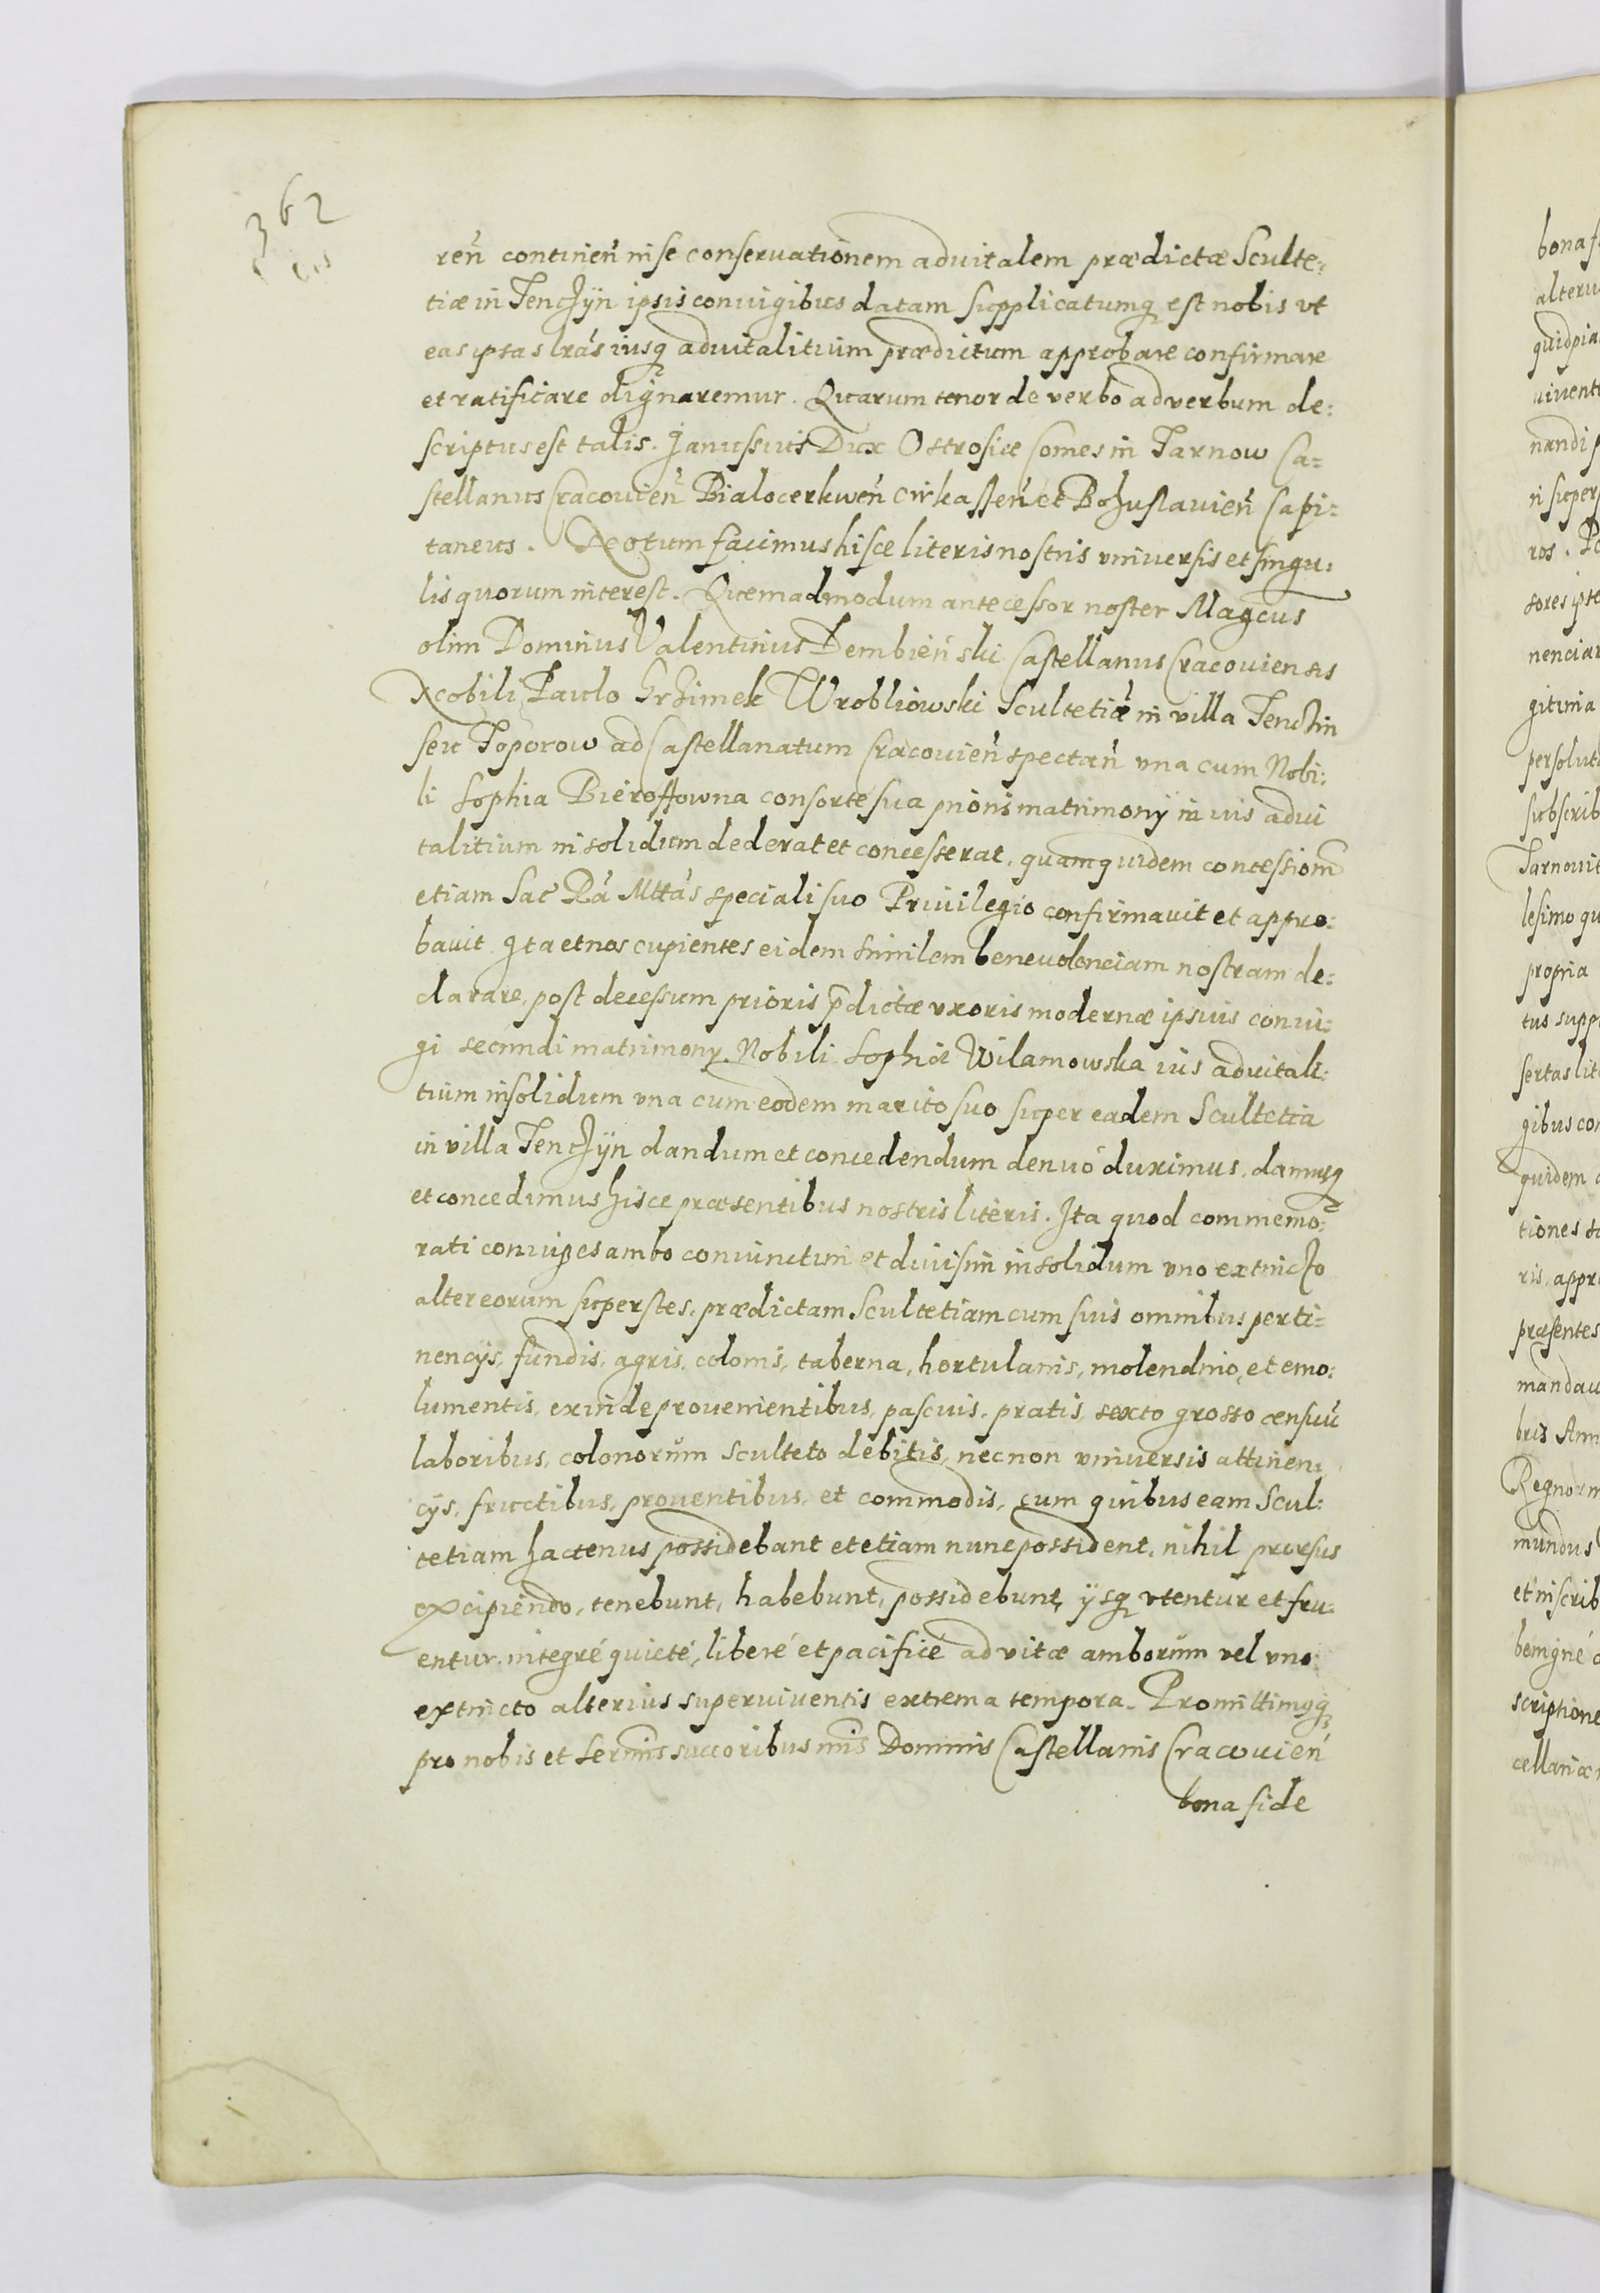 362
ren̄ continen̄ in se conseruationem aduitalem prædictæ Sculte:
tiæ in Tenczÿn ipsis coniugibus datam supplicatumq est nobis vt
eas ipsas lras iusq aduitalitium prædictum approbare confirmare
et ratificare dignaremur. Quarum tenor de verbo ad verbum de:
scriptus est talis. Janussius Dux Ostrosiæ Comes in Tarnow Ca=
stellanus Cracouien̄ Bialocerkwen̄ Cirkassen̄ et Bohuslauien̄ Capi:
taneus. Notum facimus hisce literis nostris vniuersis et singu:
lis quorum interest. Quemadmodum antecessor noster Magcus
olim Dominus Valentinus Dembieński Castellanus Cracouiensis
Nobili Paulo Grzimek Wrobliowski Scultetiæ in villa Tenczin
seu Toporow ad Castellanatum Cracouien̄ spectan̄ vna cum Nobi:
li Sophia consorte sua prioris matrimonÿ in ius adui
talitium in solidum dederat et concesserat, quamquidem concessionē
etiam Sac Rá Mttás speciali suo Priuilegio confirmauit et appro:
bauit. Ita et nos cupientes eidem similem beneuolenciam nostram de:
clarare, post decessum prioris p̄dictæ vxoris modernæ ipsius coniu:
gi secundi matrimony. Nobili Sophiæ Wilamowska ius aduitali:
tium insolidum vna cum eodem marito suo super eadem Scultetia
in villa Tenczÿn dandum et concedendum denuó duximus, damusq
et concedimus hisce præsentibus nostris literis. Ita quod commemo:
rati coniuges ambo coniunctim et diuisim insolidum vno extincto
alter eorum superstes, prædictam Scultetiam cum suis omnibus perti=
nencÿs, fundis, agris, colonis, taberna, hortulanis, molendino, et emo:
lumentis, exinde prouenientibus, pascuis, pratis, sexto grosso censuū
laboribus, colonorum Sculteto debitis, necnon vniuersis attinen:
cÿs, fructibus, prouentibus, et commodis, cum quibus eam Scul:
tetiam hactenus possidebant et etiam nunc possident, nihil prorsus
excipiendo, tenebunt, habebunt, possidebunt, ÿsq vtentur et fru:
entur, integré quieté, liberé et pacificé ad vitæ amborum vel vno
extincto alterius superviuentis extrema tempora. Promittimusq
pro nobis et Sermis succoribus nris Dominis Castellanis Cracouień
bona fide
bona f
alteru
quidpia
viuent
nandi p
in super
ros. Po
sores ipse
nenciar
gitima
persolut
subscrib
Tarnouit
lesimo qu
propria
tus supp
sertas lit
gibus con
quidem
tiones
ris, appr
præsentes
mandau
bris Ann
Regnorm
mundus
et inscrib
benigné
scriptione
cellariæ